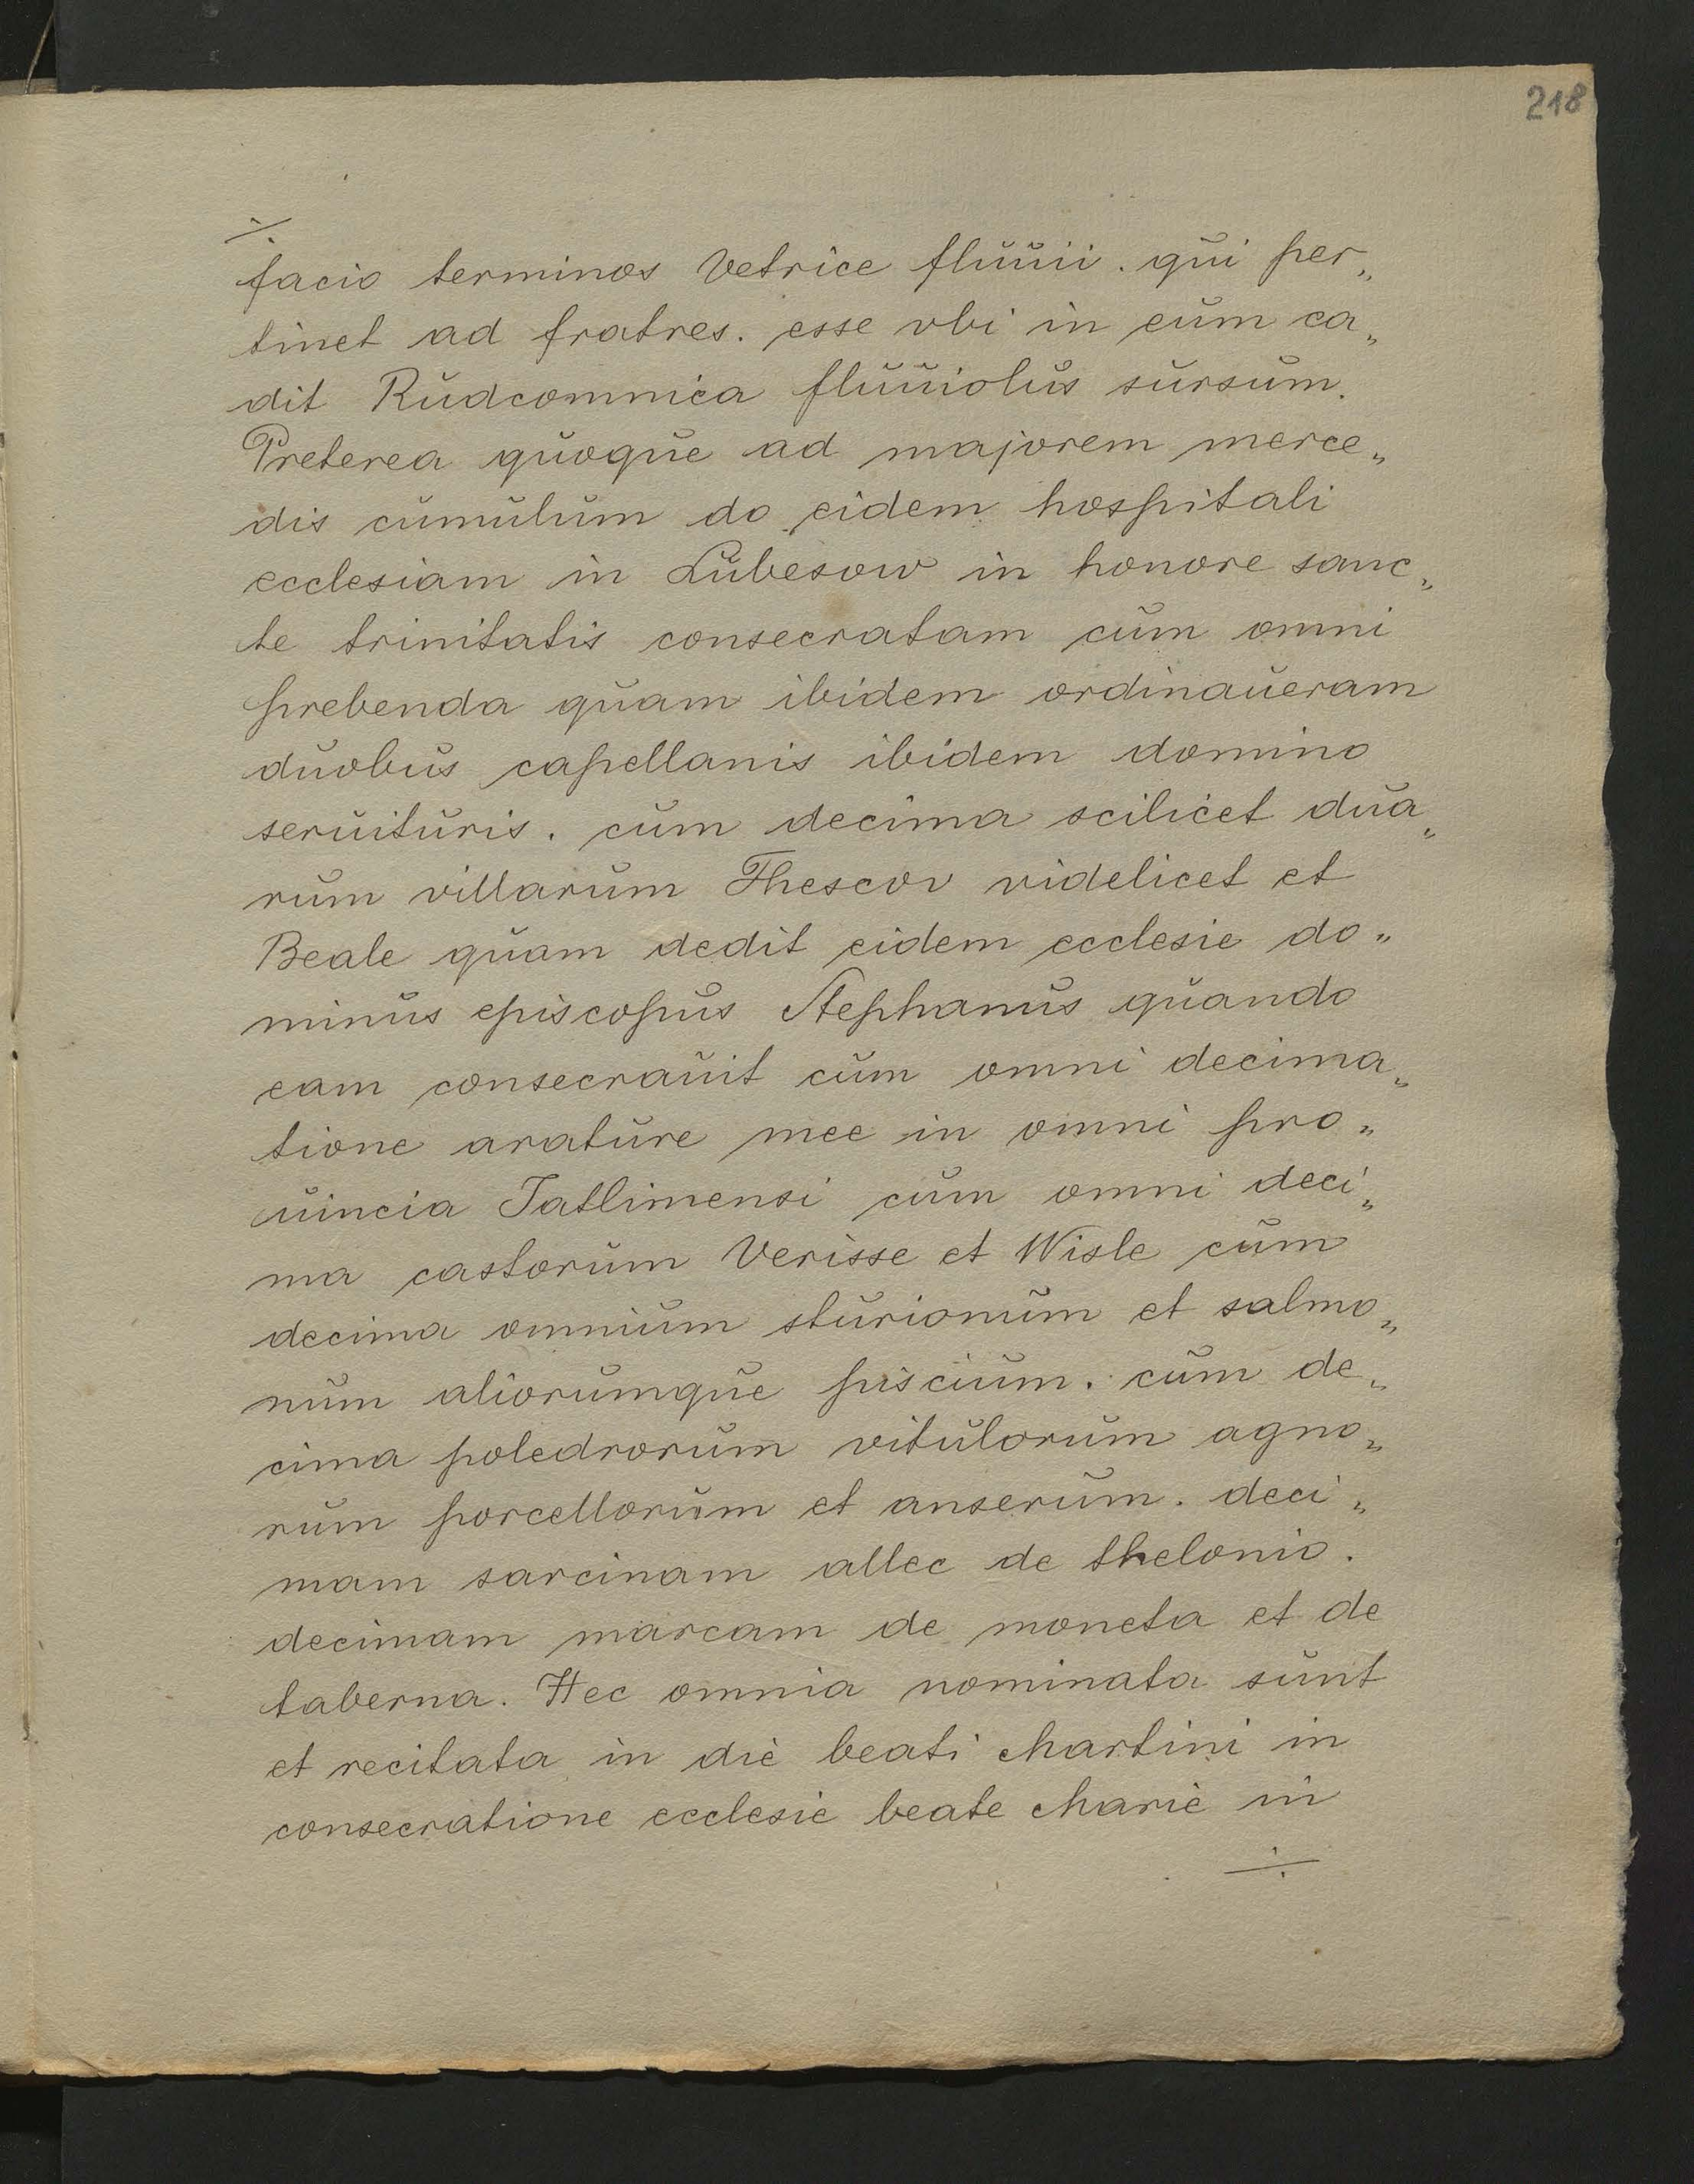 218
÷
facio terminos Vetrice fluuii. qui per„
tinet ad fratres. esse vbi in eum ca„
dit Rudcomnica fluuiolus sursum.
Preterea quoque ad majorem merce„
dis cumulum do eidem hospitali
ecclesiam in Lubesow in honore sanc„
te trinitatis consecratam cum omni
prebenda quam ibidem ordinaueram
duobus capellanis ibidem domino
seruituris. cum decima scilicet dua„
rum villarum Thescov videlicet et
Beale quam dedit eidem ecclesie do„
minus episcopus Stephanus quando
eam consecrauit cum omni decima„
tione arature mee in omni pro„
uincia Jatlimensi cum omni deci„
ma castorum Verisse et Wisle cum
decima omnium sturionum et salmo„
num aliorumque piscium. cum de„
cima poledrorum vitulorum agno„
rum porcellorum et anserum. deci„
mam sarcinam allec de thelonio.
decimam marcam de moneta et de
taberna. Hec omnia nominata sunt
et recitata in die beati Martini in
consecratione ecclesie beate Marie in
÷